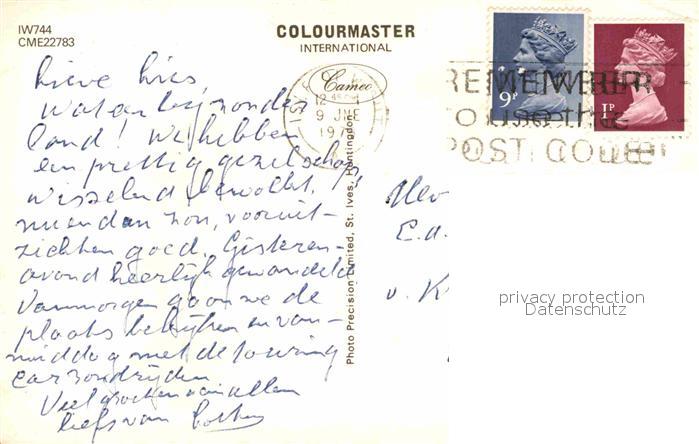 IW744
CME22783
COLOURMASTER
INTERNATIONAL
Cameo
9P
1P
12
9 JNE
19
REMEMBER
TO use the
POST CODE
Lieve Lies
Wat een bijzonder
land! We hebben
een prettig gezelschap,
wisselend bewolkt,
nu en dan zon, vooruit-
zichten goed. Gisteren-
avond heerlijk gewandeld
Vanmorgen gaan we de
plaats bekijken en van-
middag met de touring
car rondrijden
Veel groeten van allen
liefs van
Photo Precision Limited, St. Ives, Huntingdon.
Mev
E.a.
v. K
privacy protection
Datenschutz